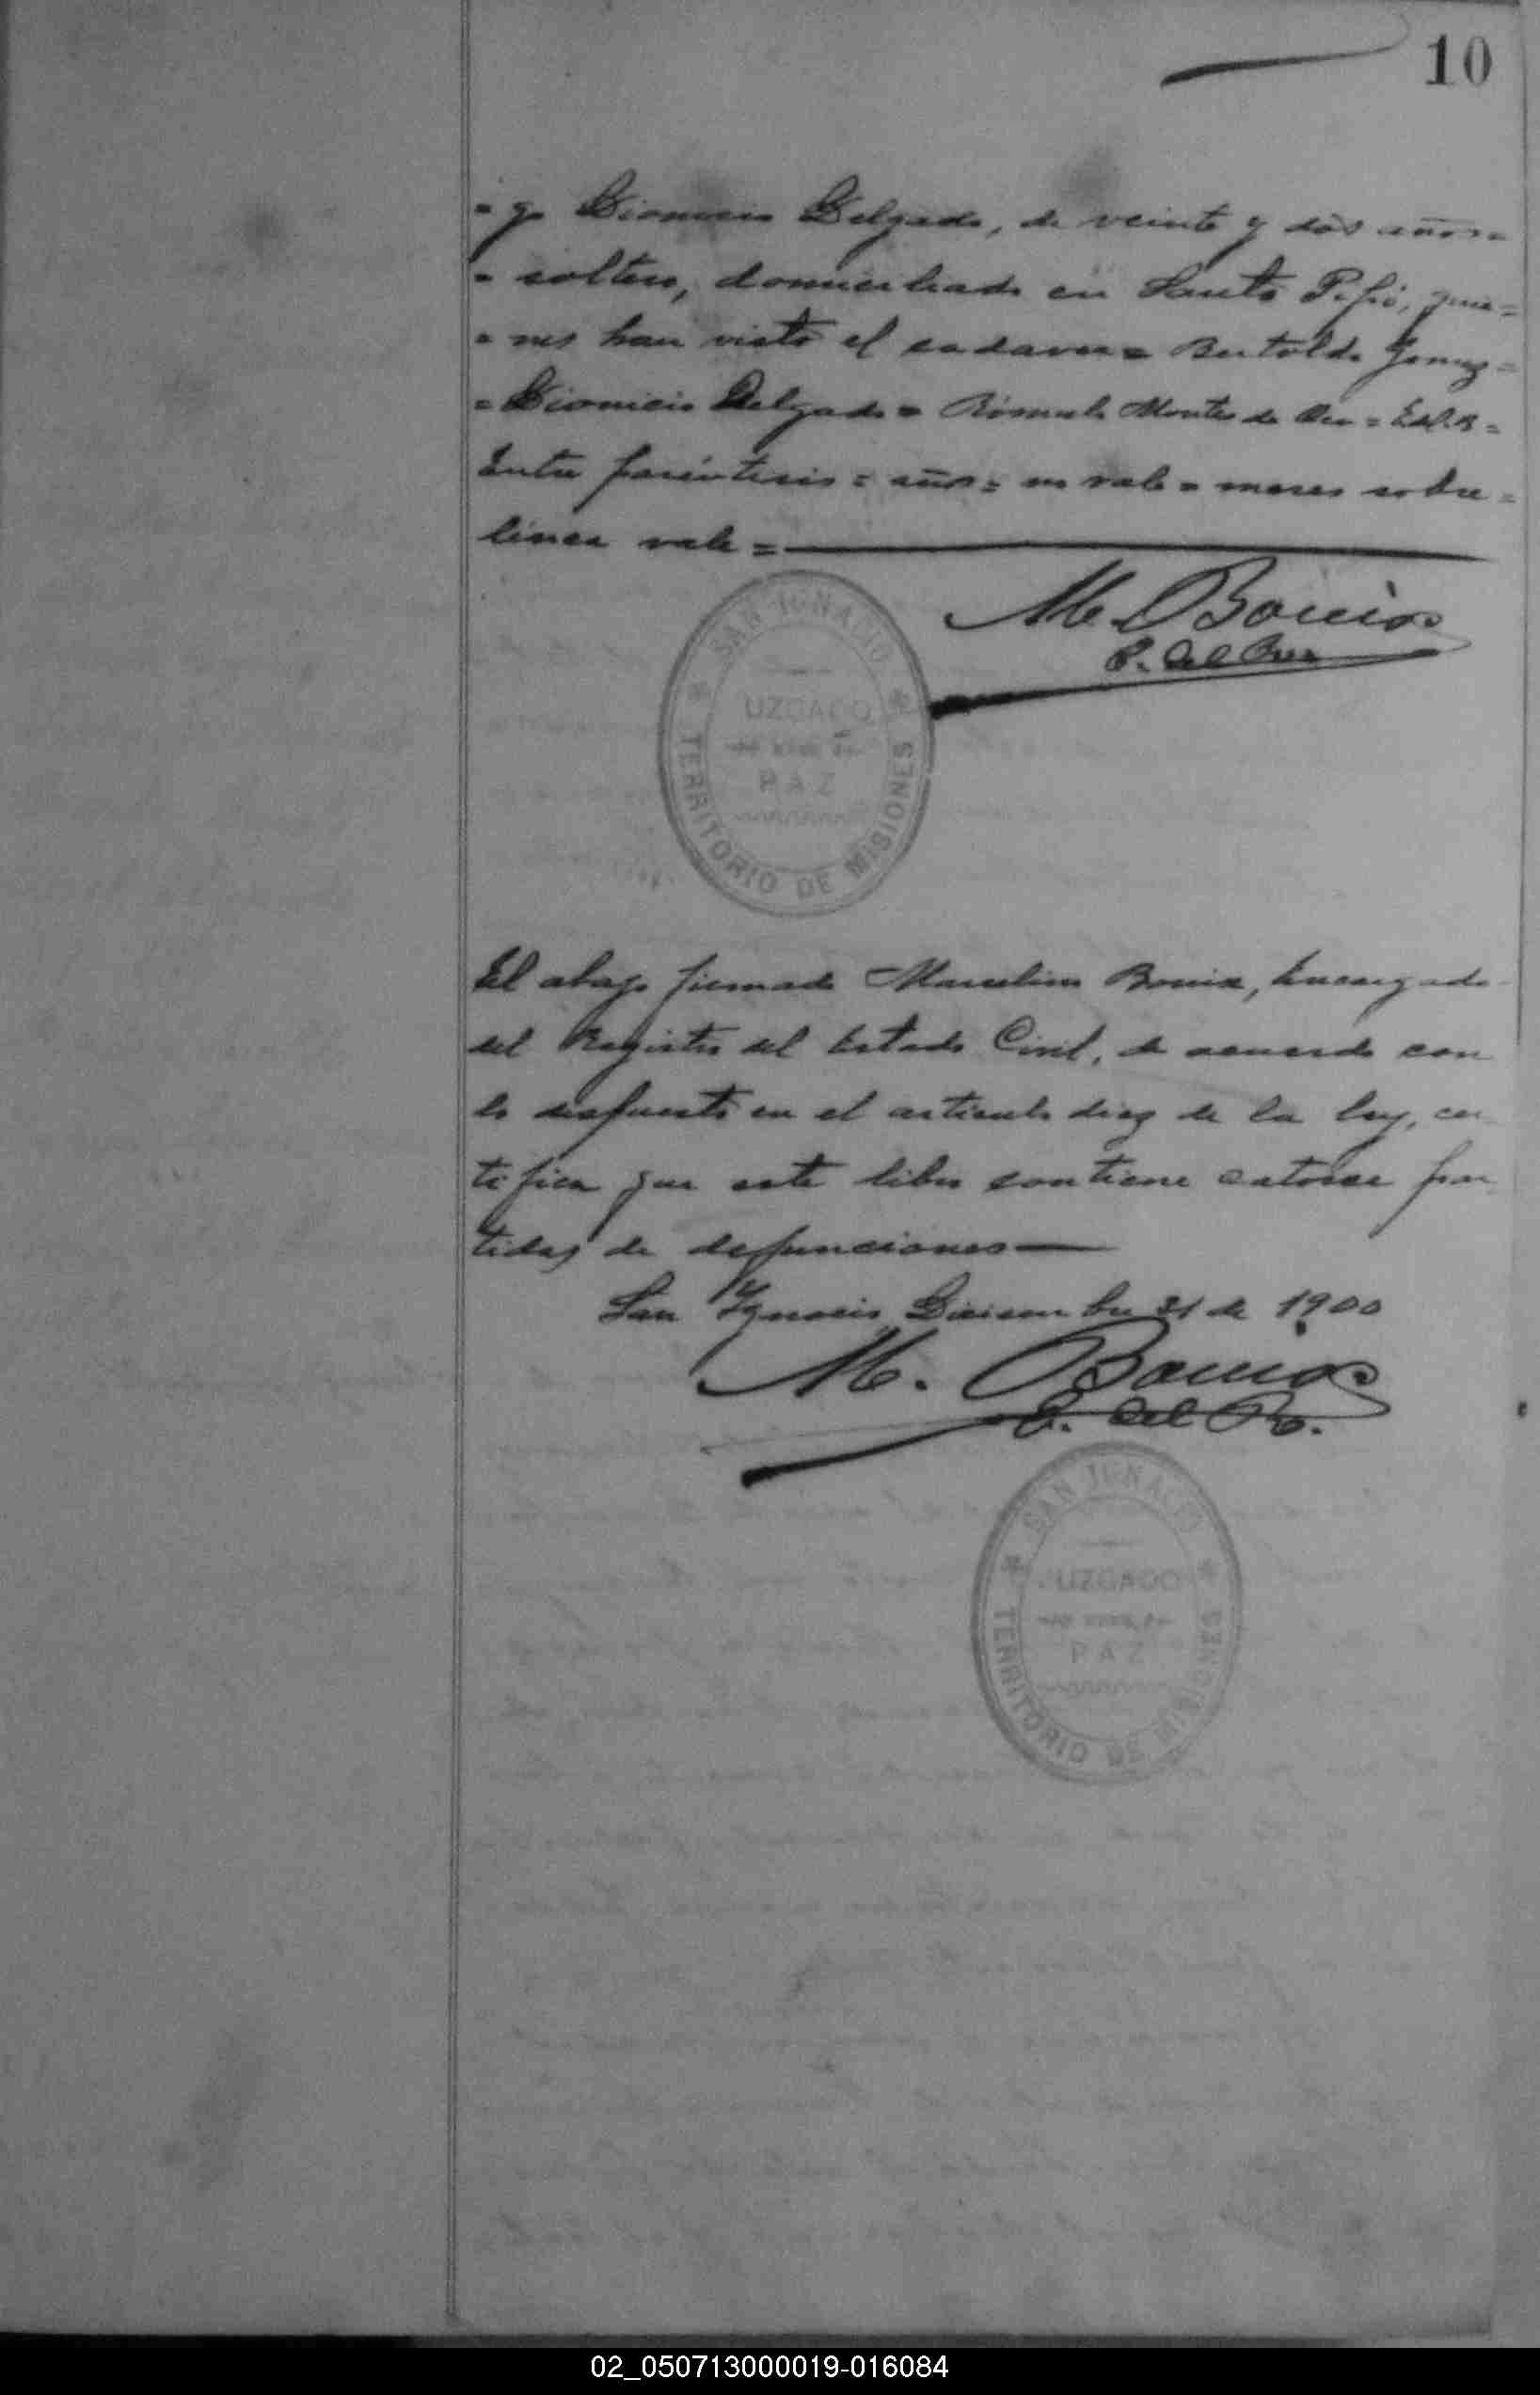 10
= y Dionicio Delgado, de veinte y dos años =
= soltero, domiciliado en Santo Pipó, quie=
= nes han visto el cadaver = Bertoldo Gomez =
= Dionicio Delgado = Rómulo Montes de Oca =
Entre paréntesis = años = no vale = meses sobre =
linea vale =
M. Bouix
E. del Reg
SAN IGNACIO
JUZGADO
PAZ
TERRITORIO DE MISIONES
El abajo firmado Marcelino Bouix, Encargado
del Registro del Estado Civil, de acuerdo con
lo dispuesto en el articulo diez de la ley, cer
tifica que este libro contiene catorce par
tidas de defunciones
San Ygnacio Diciembre 31 de 1900
M. Bouix
E. del R.
SAN IGNACIO
JUZGADO
PAZ
TERRITORIO DE MISIONES
02_050713000019-016084